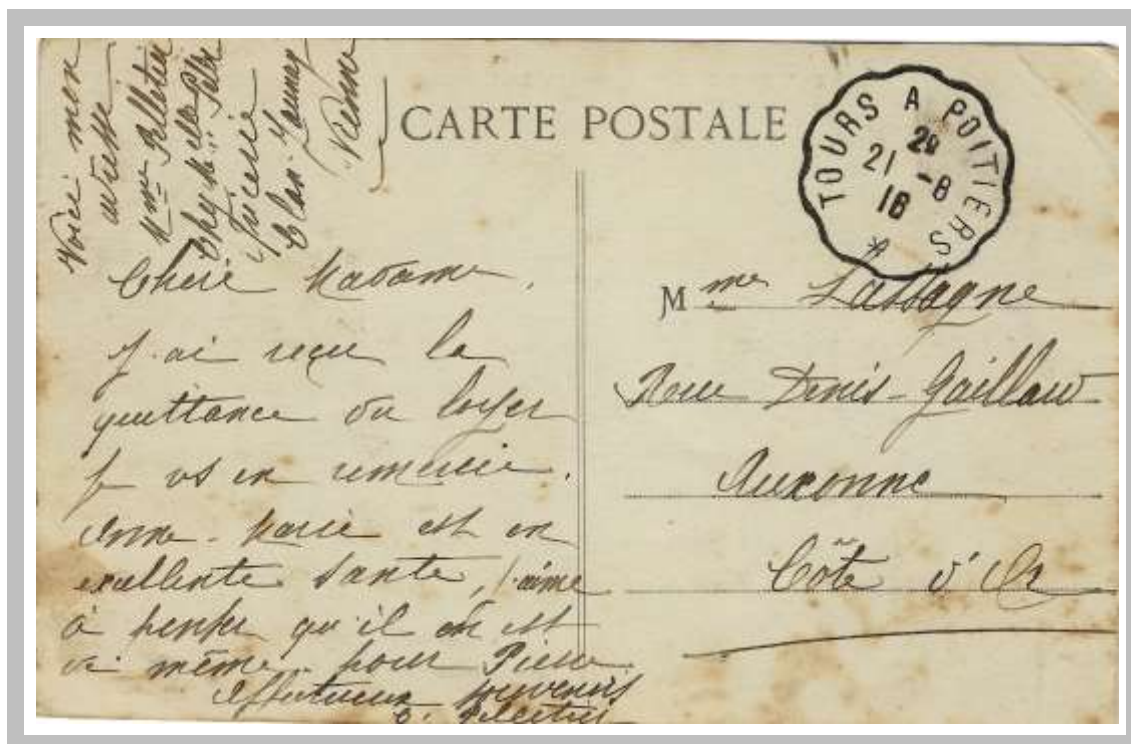 Voici mon
adresse
Mme Pelletier
chez Melle
Epicerie
Clan-Jaunay
Vienne
CARTE POSTALE
TOURS A POITIERS
21 -8
16
*
Chère Madame,
J'ai reçu la
quittance du loyer
je vs en remercie.
Anne-Marie est en
excellente santé, j'aime
à penser qu'il en est
de même pour Pierre
Affectueux souvenirs
Pelletier
Mme Lassagne
Rue Denis-Gaillard
Auxonne
Côte d'Or